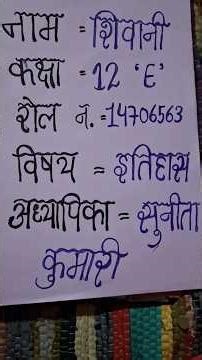 नाम = शिवानी
कक्षा = 12 'E'
रोल न. = 14706563
विषय = इतिहास
अध्यापिका = सुनीता
कुमारी